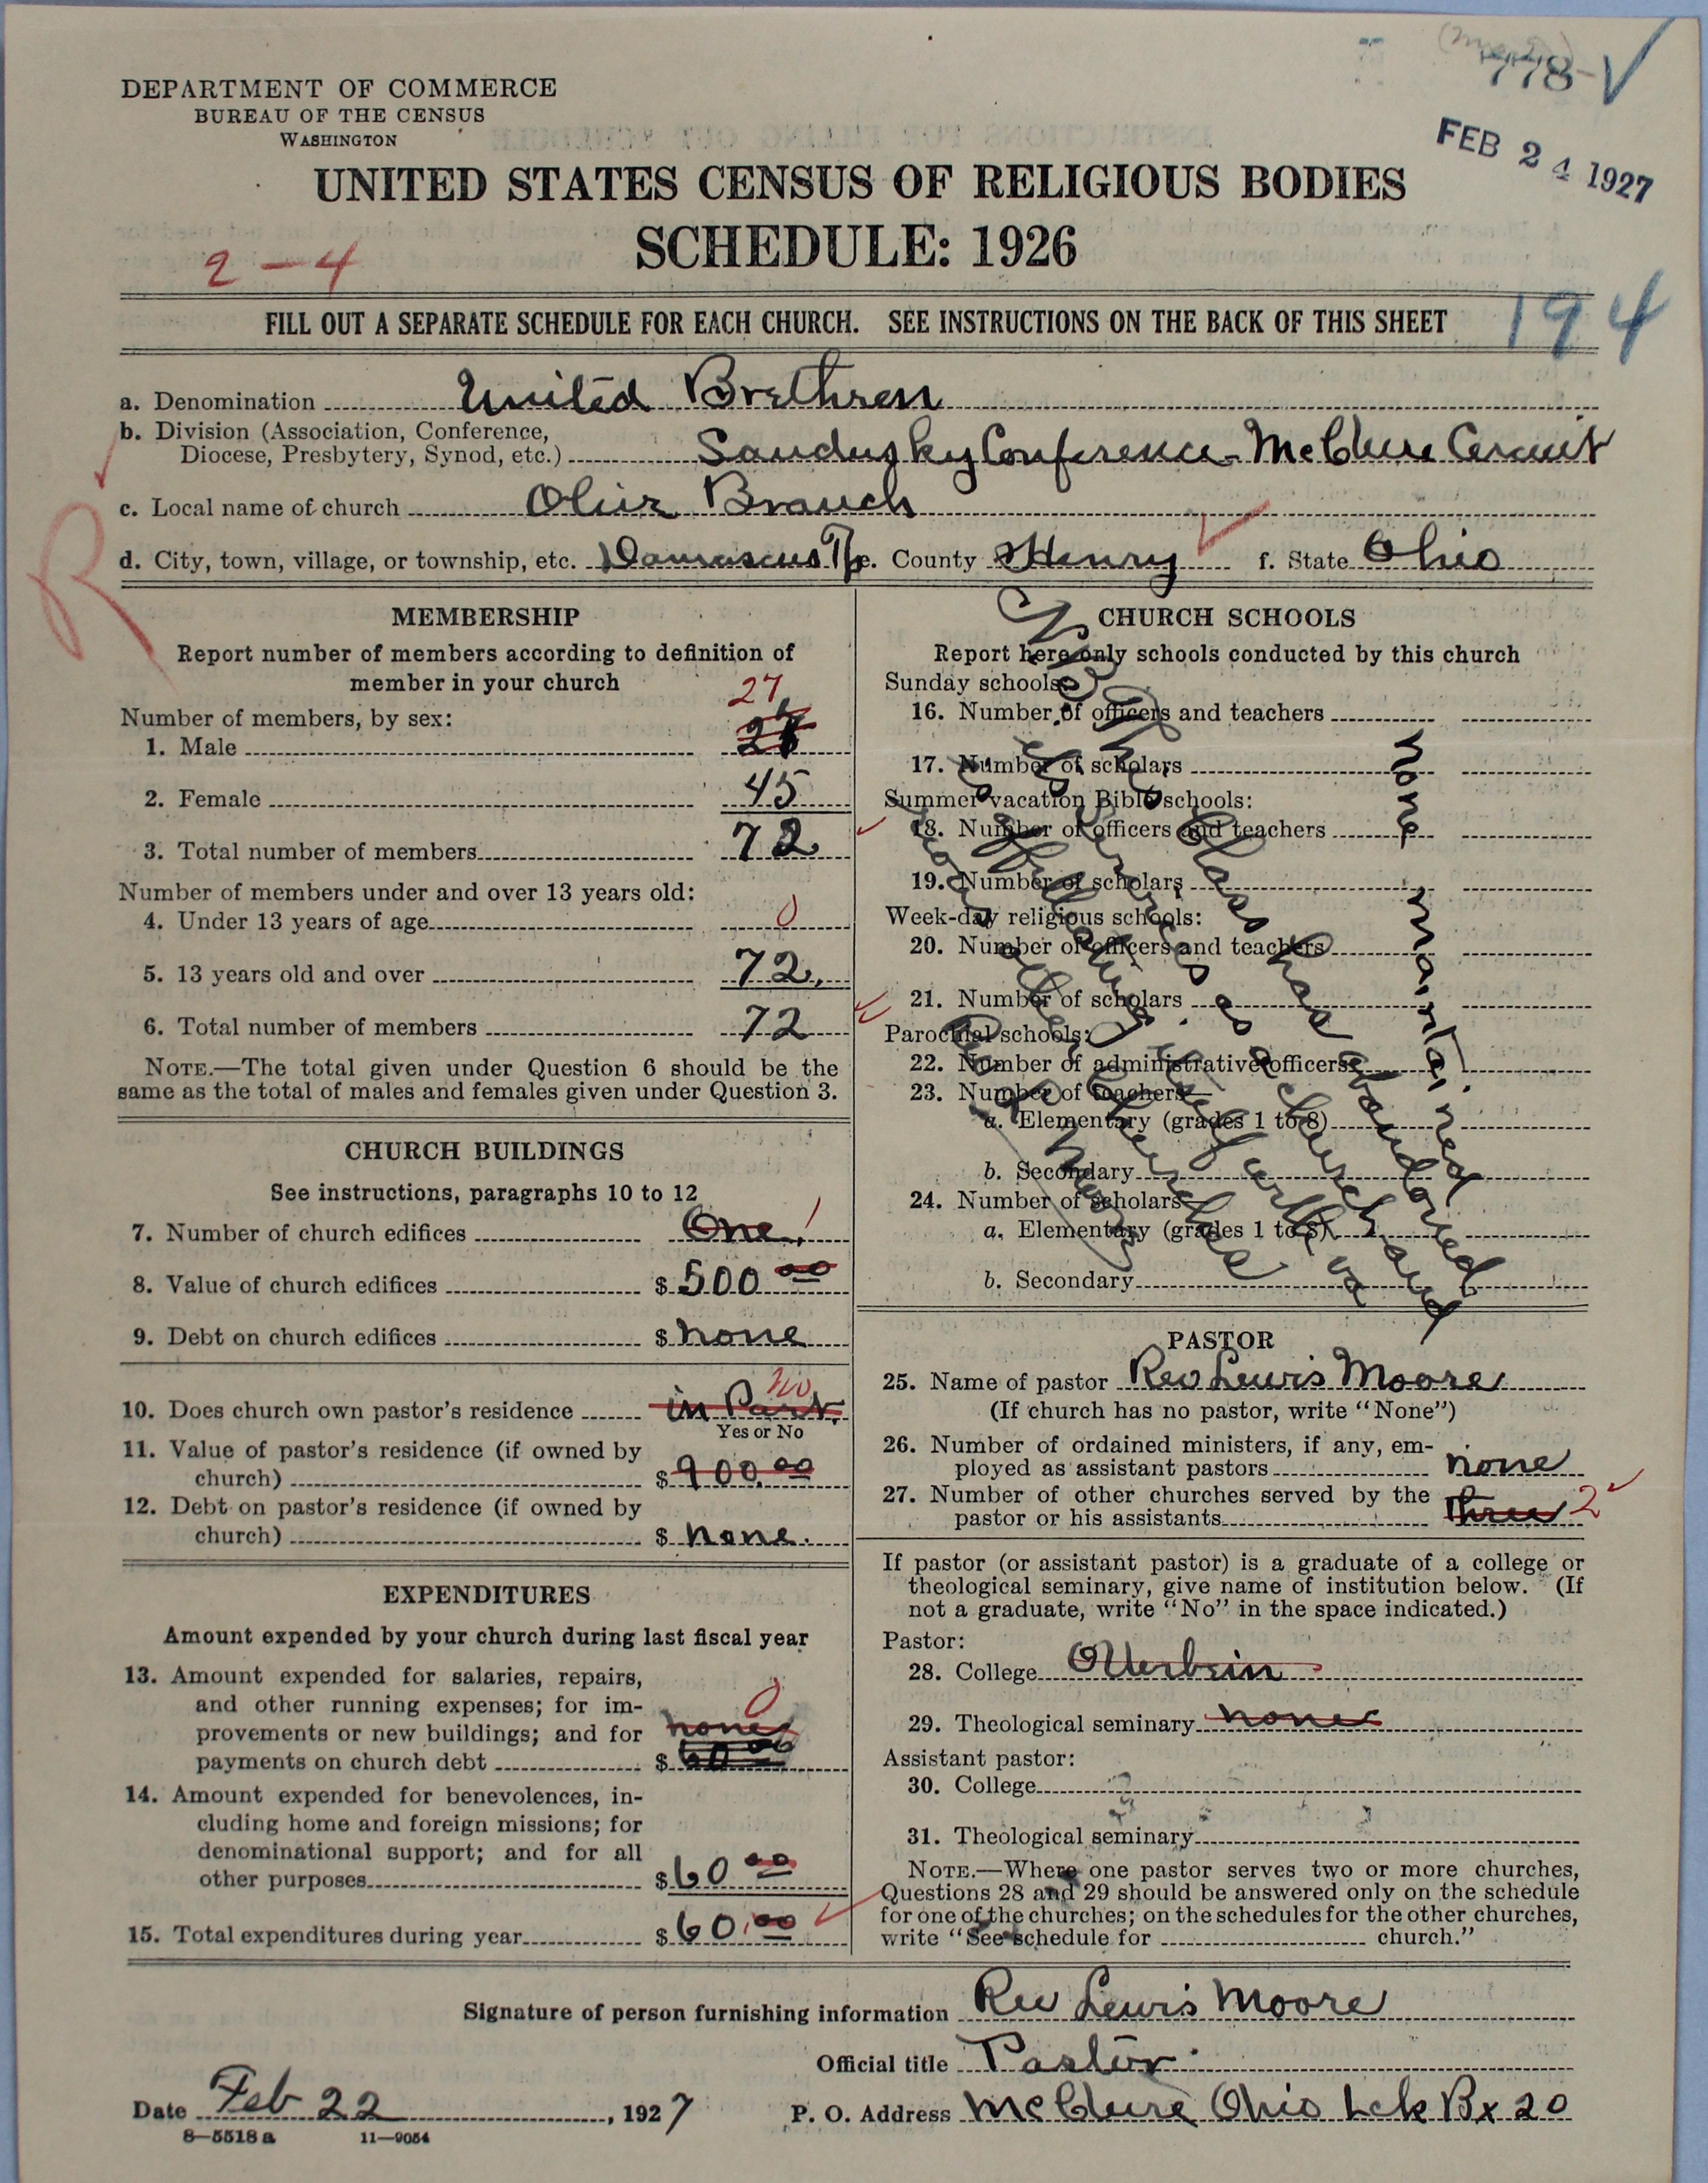 778-
FEB 24 1927
DEPARTMENT OF COMMERCE
BUREAU OF THE CENSUS
WASHINGTON
UNITED STATES CENSUS OF RELIGIOUS BODIES
SCHEDULE: 1926
2-4
FILL OUT A SEPARATE SCHEDULE FOR EACH CHURCH. SEE INSTRUCTIONS ON THE BACK OF THIS SHEET
194
a. Denomination United Brethren
b. Division (Association, Conference,
Diocese, Presbytery, Synod, etc.) Sandusky Conference - McClure Circuit
c. Local name of church Olive Branch
d. City, town, village, or township, etc. Damascus Tp e. County Henry f. State Ohio
R
MEMBERSHIP
Report number of members according to definition of
member in your church
27
Number of members, by sex:
1. Male
2. Female 45
3. Total number of members 72
Number of members under and over 13 years old:
4. Under 13 years of age 0
5. 13 years old and over 72.
6. Total number of members 72
NOTE.—The total given under Question 6 should be the
same as the total of males and females given under Question 3.
CHURCH BUILDINGS
See instructions, paragraphs 10 to 12
7. Number of church edifices One. 1
8. Value of church edifices $ 500 00
9. Debt on church edifices $ none
10. Does church own pastor's residence in Part. no
Yes or No
11. Value of pastor's residence (if owned by
church) $ 900.00
12. Debt on pastor's residence (if owned by
church) $ none.
EXPENDITURES
Amount expended by your church during last fiscal year
13. Amount expended for salaries, repairs,
and other running expenses; for im-
0
provements or new buildings; and for none
payments on church debt $ 60 00
14. Amount expended for benevolences, in-
cluding home and foreign missions; for
denominational support; and for all
other purposes $ 60 00
15. Total expenditures during year $ 60.00
CHURCH SCHOOLS
Report here only schools conducted by this church
Sunday schools:
16. Number of officers and teachers
17. Number of scholars
Summer vacation Bible schools:
18. Number of officers and teachers
19. Number of scholars
Week-day religious schools:
20. Number of officers and teachers
21. Number of scholars
Parochial schools:
22. Number of administrative officers
23. Number of teachers—
a. Elementary (grades 1 to 8)
b. Secondary
24. Number of scholars—
a. Elementary (grades 1 to 8)
b. Secondary
none maintained
class has abandoned
services as a church and
other churches
PASTOR
25. Name of pastor Rev Lewis Moore
(If church has no pastor, write "None")
26. Number of ordained ministers, if any, em-
ployed as assistant pastors none
27. Number of other churches served by the
pastor or his assistants three 2
If pastor (or assistant pastor) is a graduate of a college or
theological seminary, give name of institution below. (If
not a graduate, write "No" in the space indicated.)
Pastor:
28. College Otterbein
29. Theological seminary none
Assistant pastor:
30. College
31. Theological seminary
NOTE.—Where one pastor serves two or more churches,
Questions 28 and 29 should be answered only on the schedule
for one of the churches; on the schedules for the other churches,
write "See schedule for church."
Signature of person furnishing information Rev Lewis Moore
Official title Pastor
Date Feb 22, 1927 P. O. Address McClure Ohio Lck Bx 20
8—5518 a 11—9054